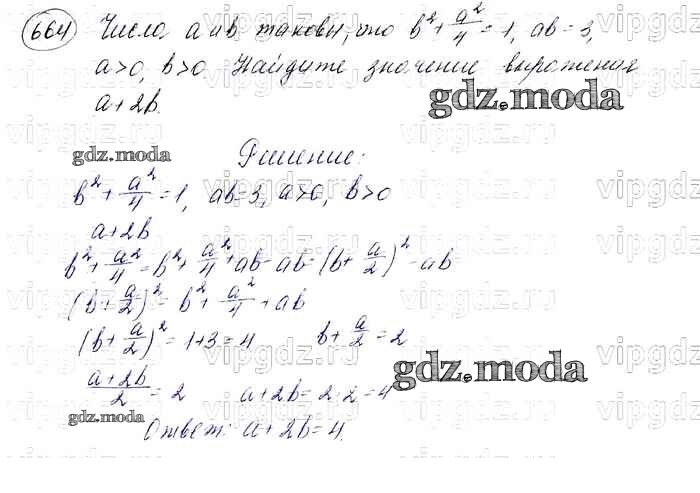 664 Числа a и b таковы, что b² + a²/4 = 1, ab = 3,
a > 0, b > 0. Найдите значение выражения
a + 2b.
gdz.moda
gdz.moda
Решение:
b² + a²/4 = 1, ab = 3, a > 0, b > 0
a + 2b
b² + a²/4 = b² + a²/4 + ab - ab = (b + a/2)² - ab
(b + a/2)² = b² + a²/4 + ab
(b + a/2)² = 1 + 3 = 4 b + a/2 = 2
gdz.moda
(a + 2b)/2 = 2 a + 2b = 2·2 = 4
gdz.moda
Ответ: a + 2b = 4.
vipgdz.ru